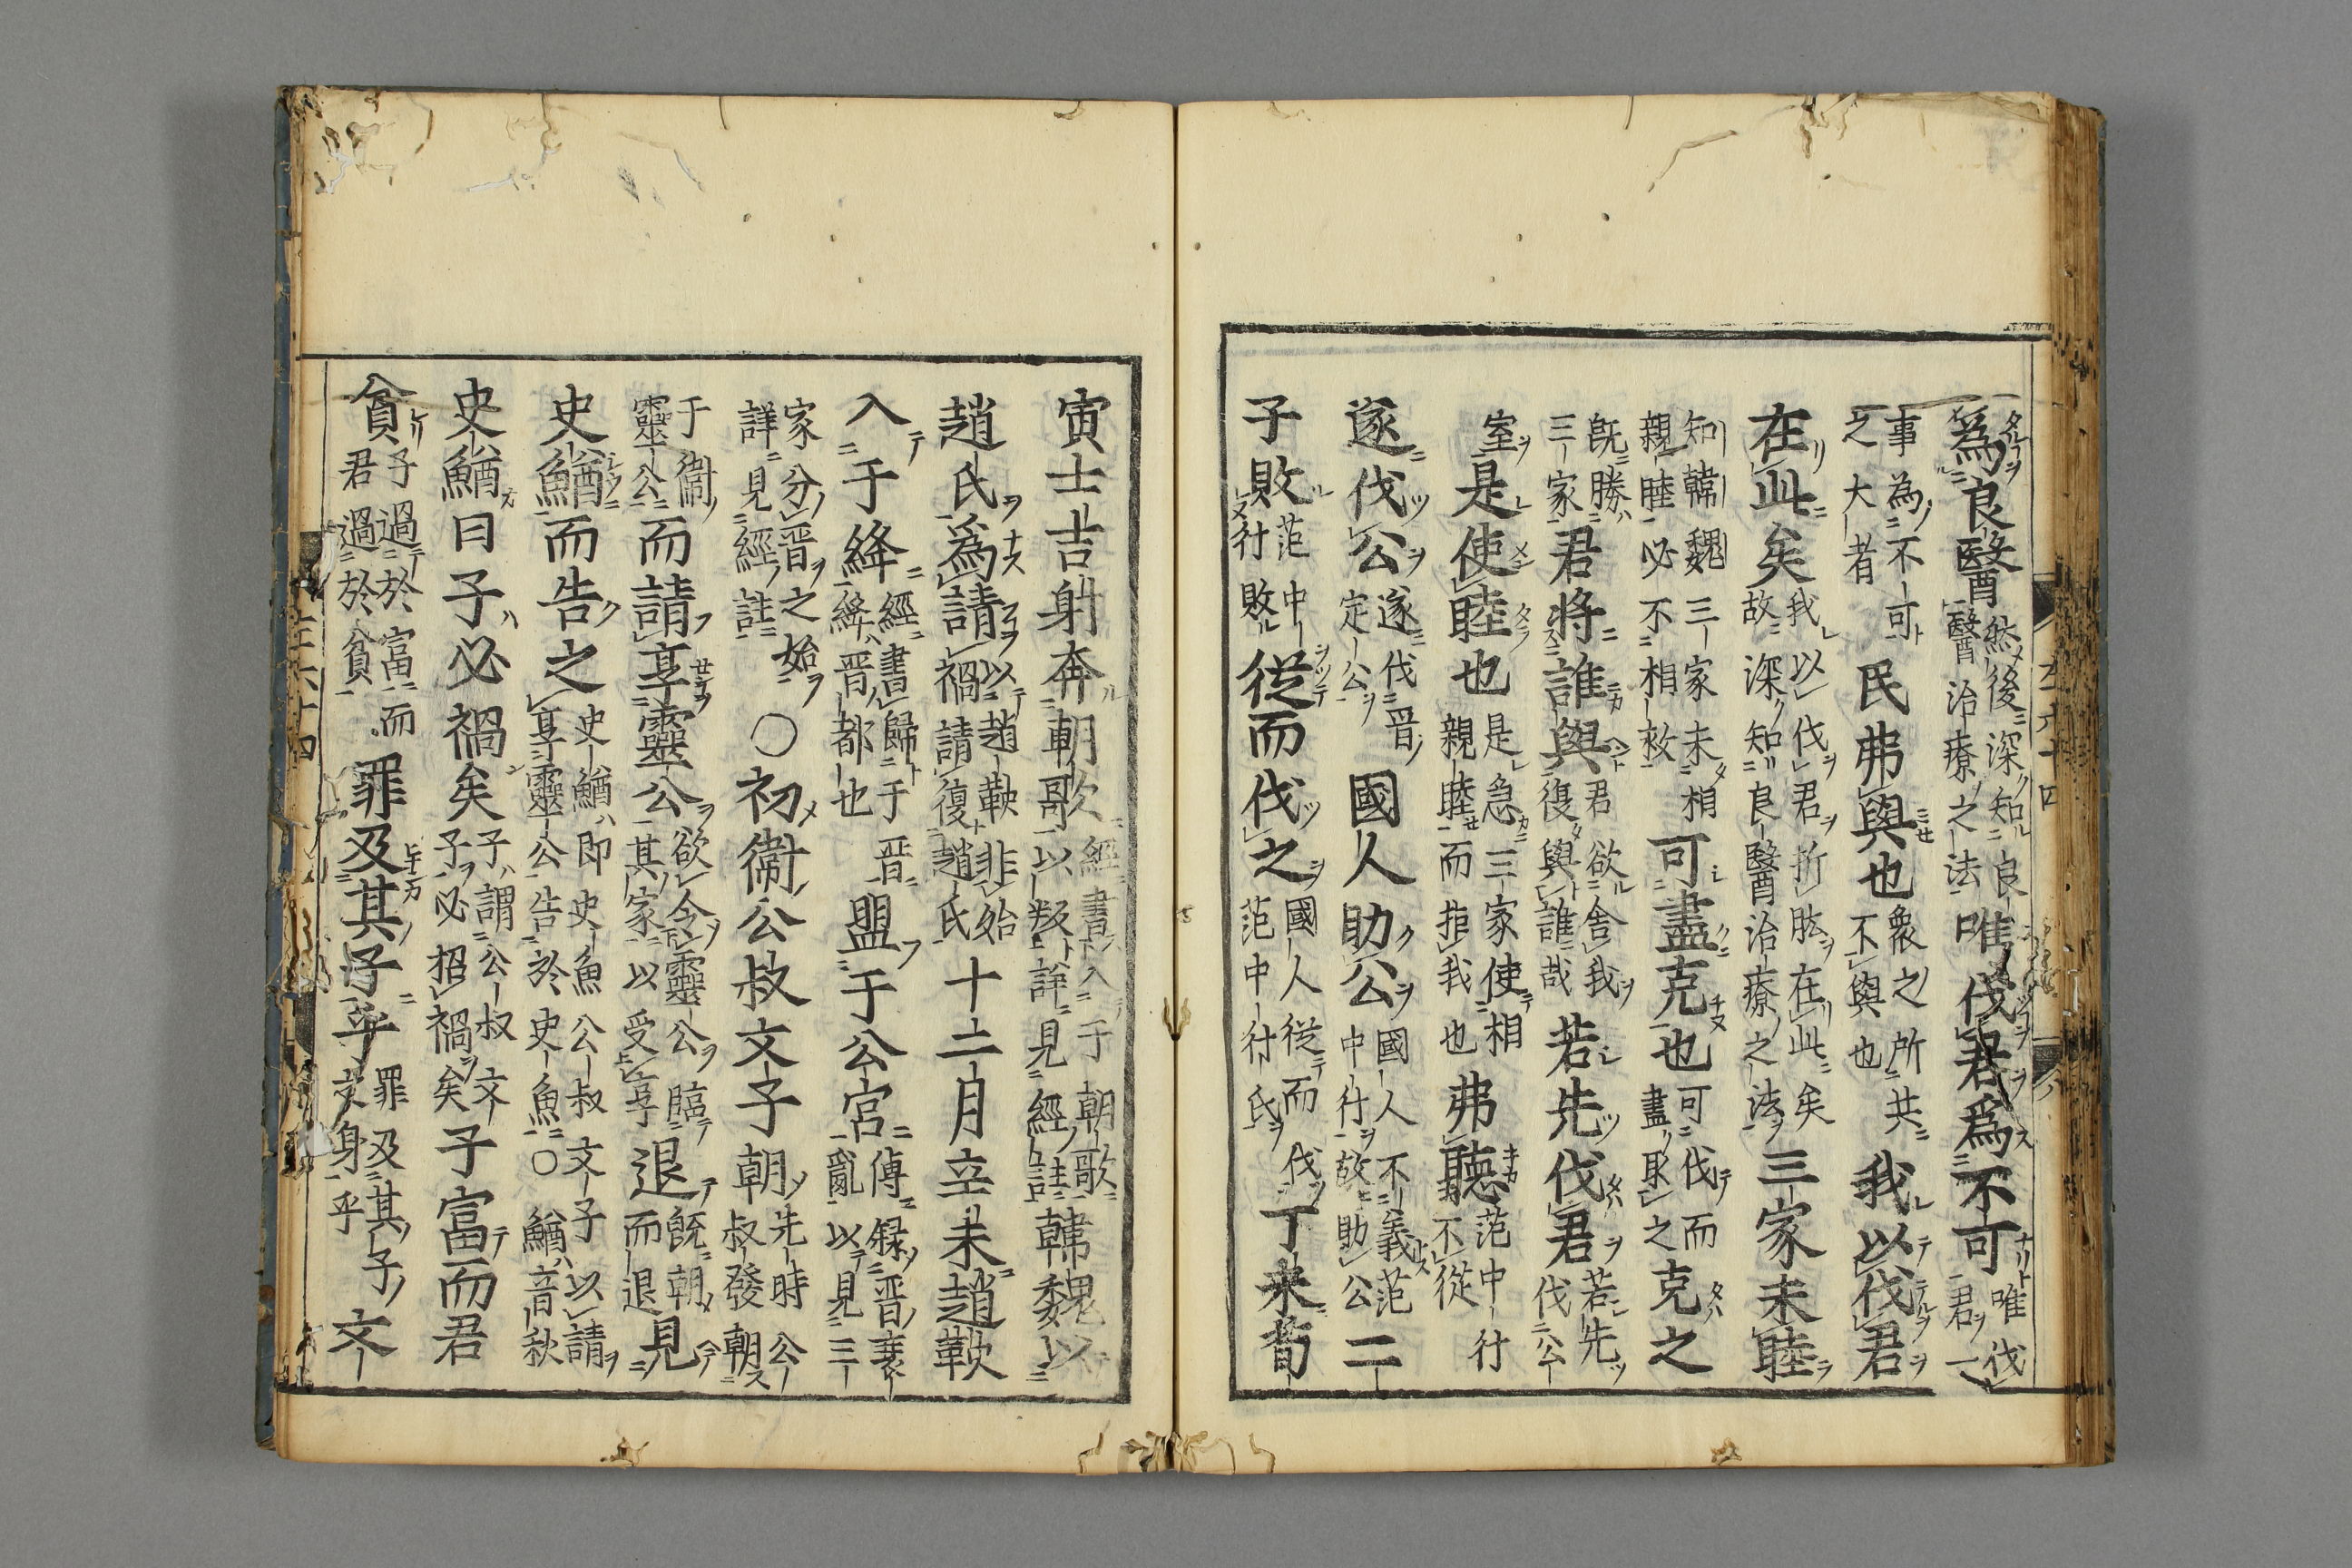 為良醫然後深知良醫治療之法唯伐君為不可唯伐君一
事為不可之大者民弗與也衆之所共不與也我以伐君
在此矣我以伐君折肱在此矣故深知良醫治療之法三家未睦
知韓魏三家未相親睦必不相救可盡克也可伐而盡取之克之
既勝三家君將誰與君欲舍我復與誰哉若先伐君若先伐公
室是使睦也是急三家使相親睦而拒我也弗聽范中行不從
遂伐公遂伐晋定公國人助公國人不義范中行故助公二
子敗范中行敗從而伐之國人從而伐范中行氏丁未荀
寅士吉射奔朝歌經書入于朝歌以叛詳見經註韓魏以
趙氏為請以趙鞅非始禍請復趙氏十二月辛未趙鞅
入于絳經書歸于晋絳晋都也盟于公宮傳録晋衰亂以見三
家分晋之始詳見經註○初衛公叔文子朝先時公叔發朝
于衛靈公而請享靈公欲令靈公臨其家以受享退既朝而退見
史鰌而告之史鰌即史魚公叔文子以請享靈公告於史魚○鰌音秋
史鰌曰子必禍矣子謂公叔文子必招禍矣子富而君
貧子過於富而君過於貧罪及其子乎罪及其子文身乎文